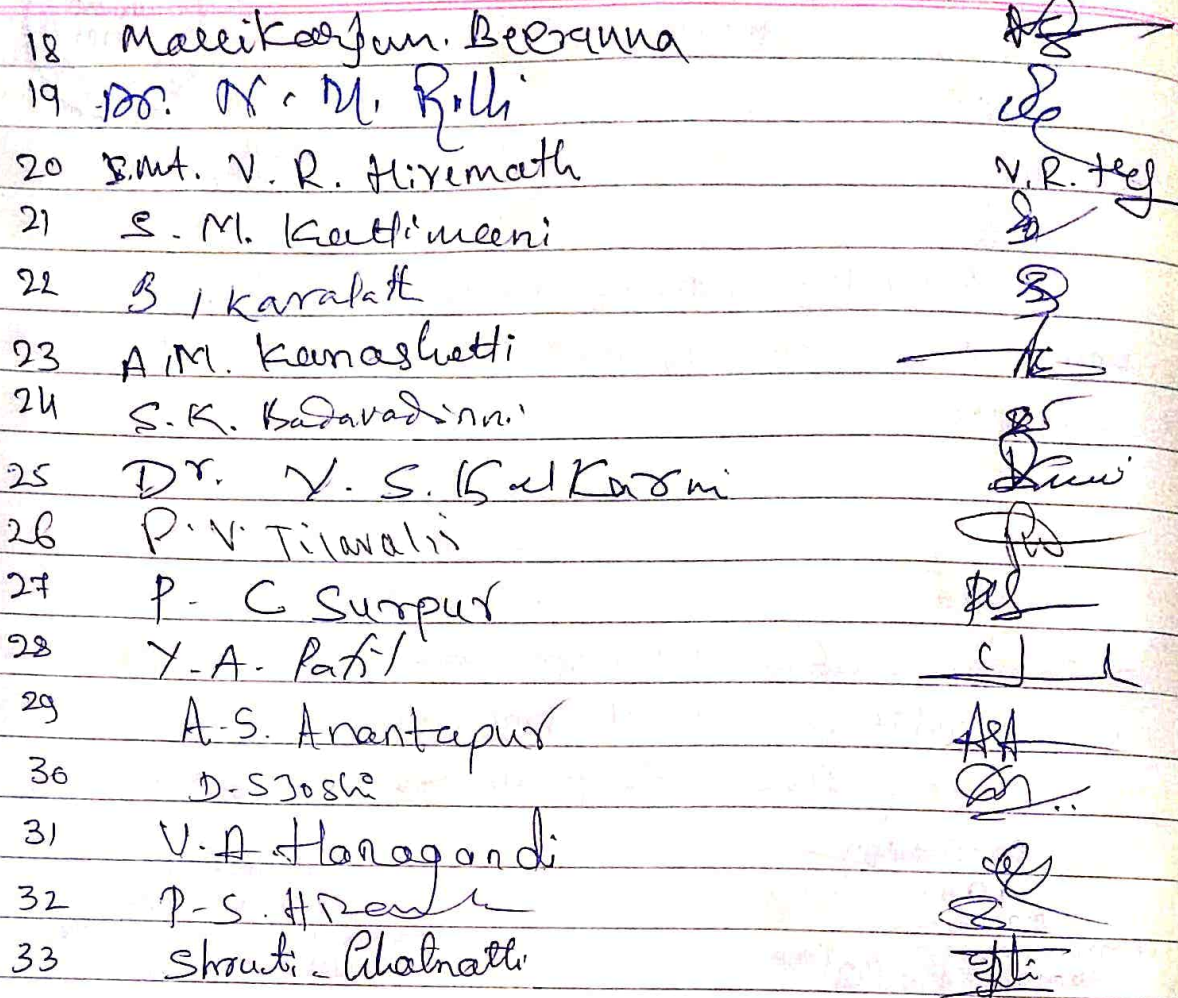 18 Mallikarjun. Beeranna
19 Dr. N. M. Rolli
20 Smt. V. R. Hiremath V. R.
21 S. M. Kattimani
22 B I Karalatt
23 A.M. Kanashetti
24 S. K. Badavadinni
25 Dr. V. S. Kulkarni
26 P. V. Tilavalis
27 P. C Surpur
28 Y. A. Patil
29 A. S. Anantapur
30 D. S Joshi
31 V. A. Haragandi
32 P-S. H
33 Shruti